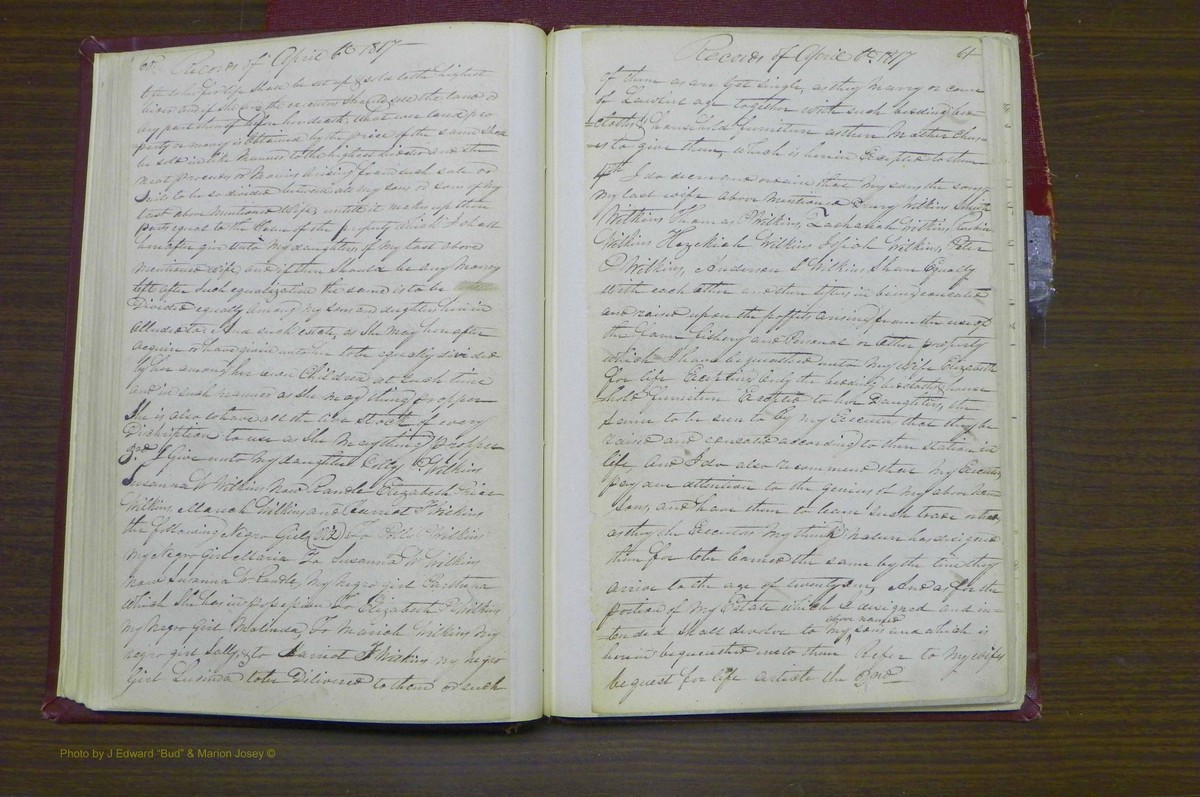 Records of April 6th 1817
to her during life shall be set up & sold to the highest
bidder and if she or the executor should sell the land or
any part thereof before her death, what ever land pro
perty or money is obtained by the price of the same shall
be sold in like manner to the highest bidder and the
neat proceeds or monies arising from such sale or
sails to be so divided between all my sons or sons of my
last above mentioned wife, untill it makes up their
parts equal to the value of the property which I shall
hereafter give unto my daughters, of my last above
mentioned wife and if there should be any money
left after such equalization the same is to be
Divided equally among my sons and daughters herein
alluded to. And such estate, as she may hereafter
acquire or have given unto her to be equally divided
by her among her own Children at such time
and in such manner as she may think propper
She is also to have all the live stock of every
Discription to use as she may think propper
3rd I Give unto my daughters Polly Wilkins
Susanna W Wilkins now Randle Elizabeth Price
Wilkins, Mariah Wilkins and Harriot F Wilkins
the following Negro Girls (Viz) To Polly Wilkins
my Negro Girl Maria To Susanna W Wilkins
now Susanna W Randle, my negro girl
which She has in possession To Elizabeth P Wilkins
my Negro Girl Malinda, To Mariah Wilkins my
negro girl Sally, & to Harriot F Wilkins my negro
Girl Lusinda to be Delivered to them or such
Records of April 6th 1817 61
of them as are yet single, as they marry or come
of Lawful age together with such bedding bed
=cloths & household furniture as their Mother Chuse
=es to give them, which is herein Excepted to them
4th I do decree and ordain that my sons the sons of
my last wife above mentioned Drury Wilkins Smith
Wilkins Thomas Wilkins, Zachariah Wilkins, Reubin
Wilkins Hezekiah Wilkins Josiah Wilkins, Peter
P Wilkins, Anderson S Wilkins Share Equally
with each other and their sisters in being educated
and raised upon the proffits arising from the use of
the Farm fishery and Personal or other property
which I have bequeathed unto my wife Elizabeth
for life Excepting only the bedding bedcloths & house
=hold furniture Excepted to her Daughters, the
same to be seen to by my Executor that they be
raised and educated according to their station in
life And I do also recommend that my Executor
pay an attention to the genius of my above named
Sons, and have them to learn such trade or trades
as they the Executors My think nature has designed
them for to be learned the same by the time they
arrive to the age of twenty one, And as for the
portion of my Estate which I designed and in=
=tended shall devolve to my above named sons and which is
herein bequeathed unto them Refer to my wifes
bequest for life article the 2nd
Photo by J Edward "Bud" & Marion Josey ©